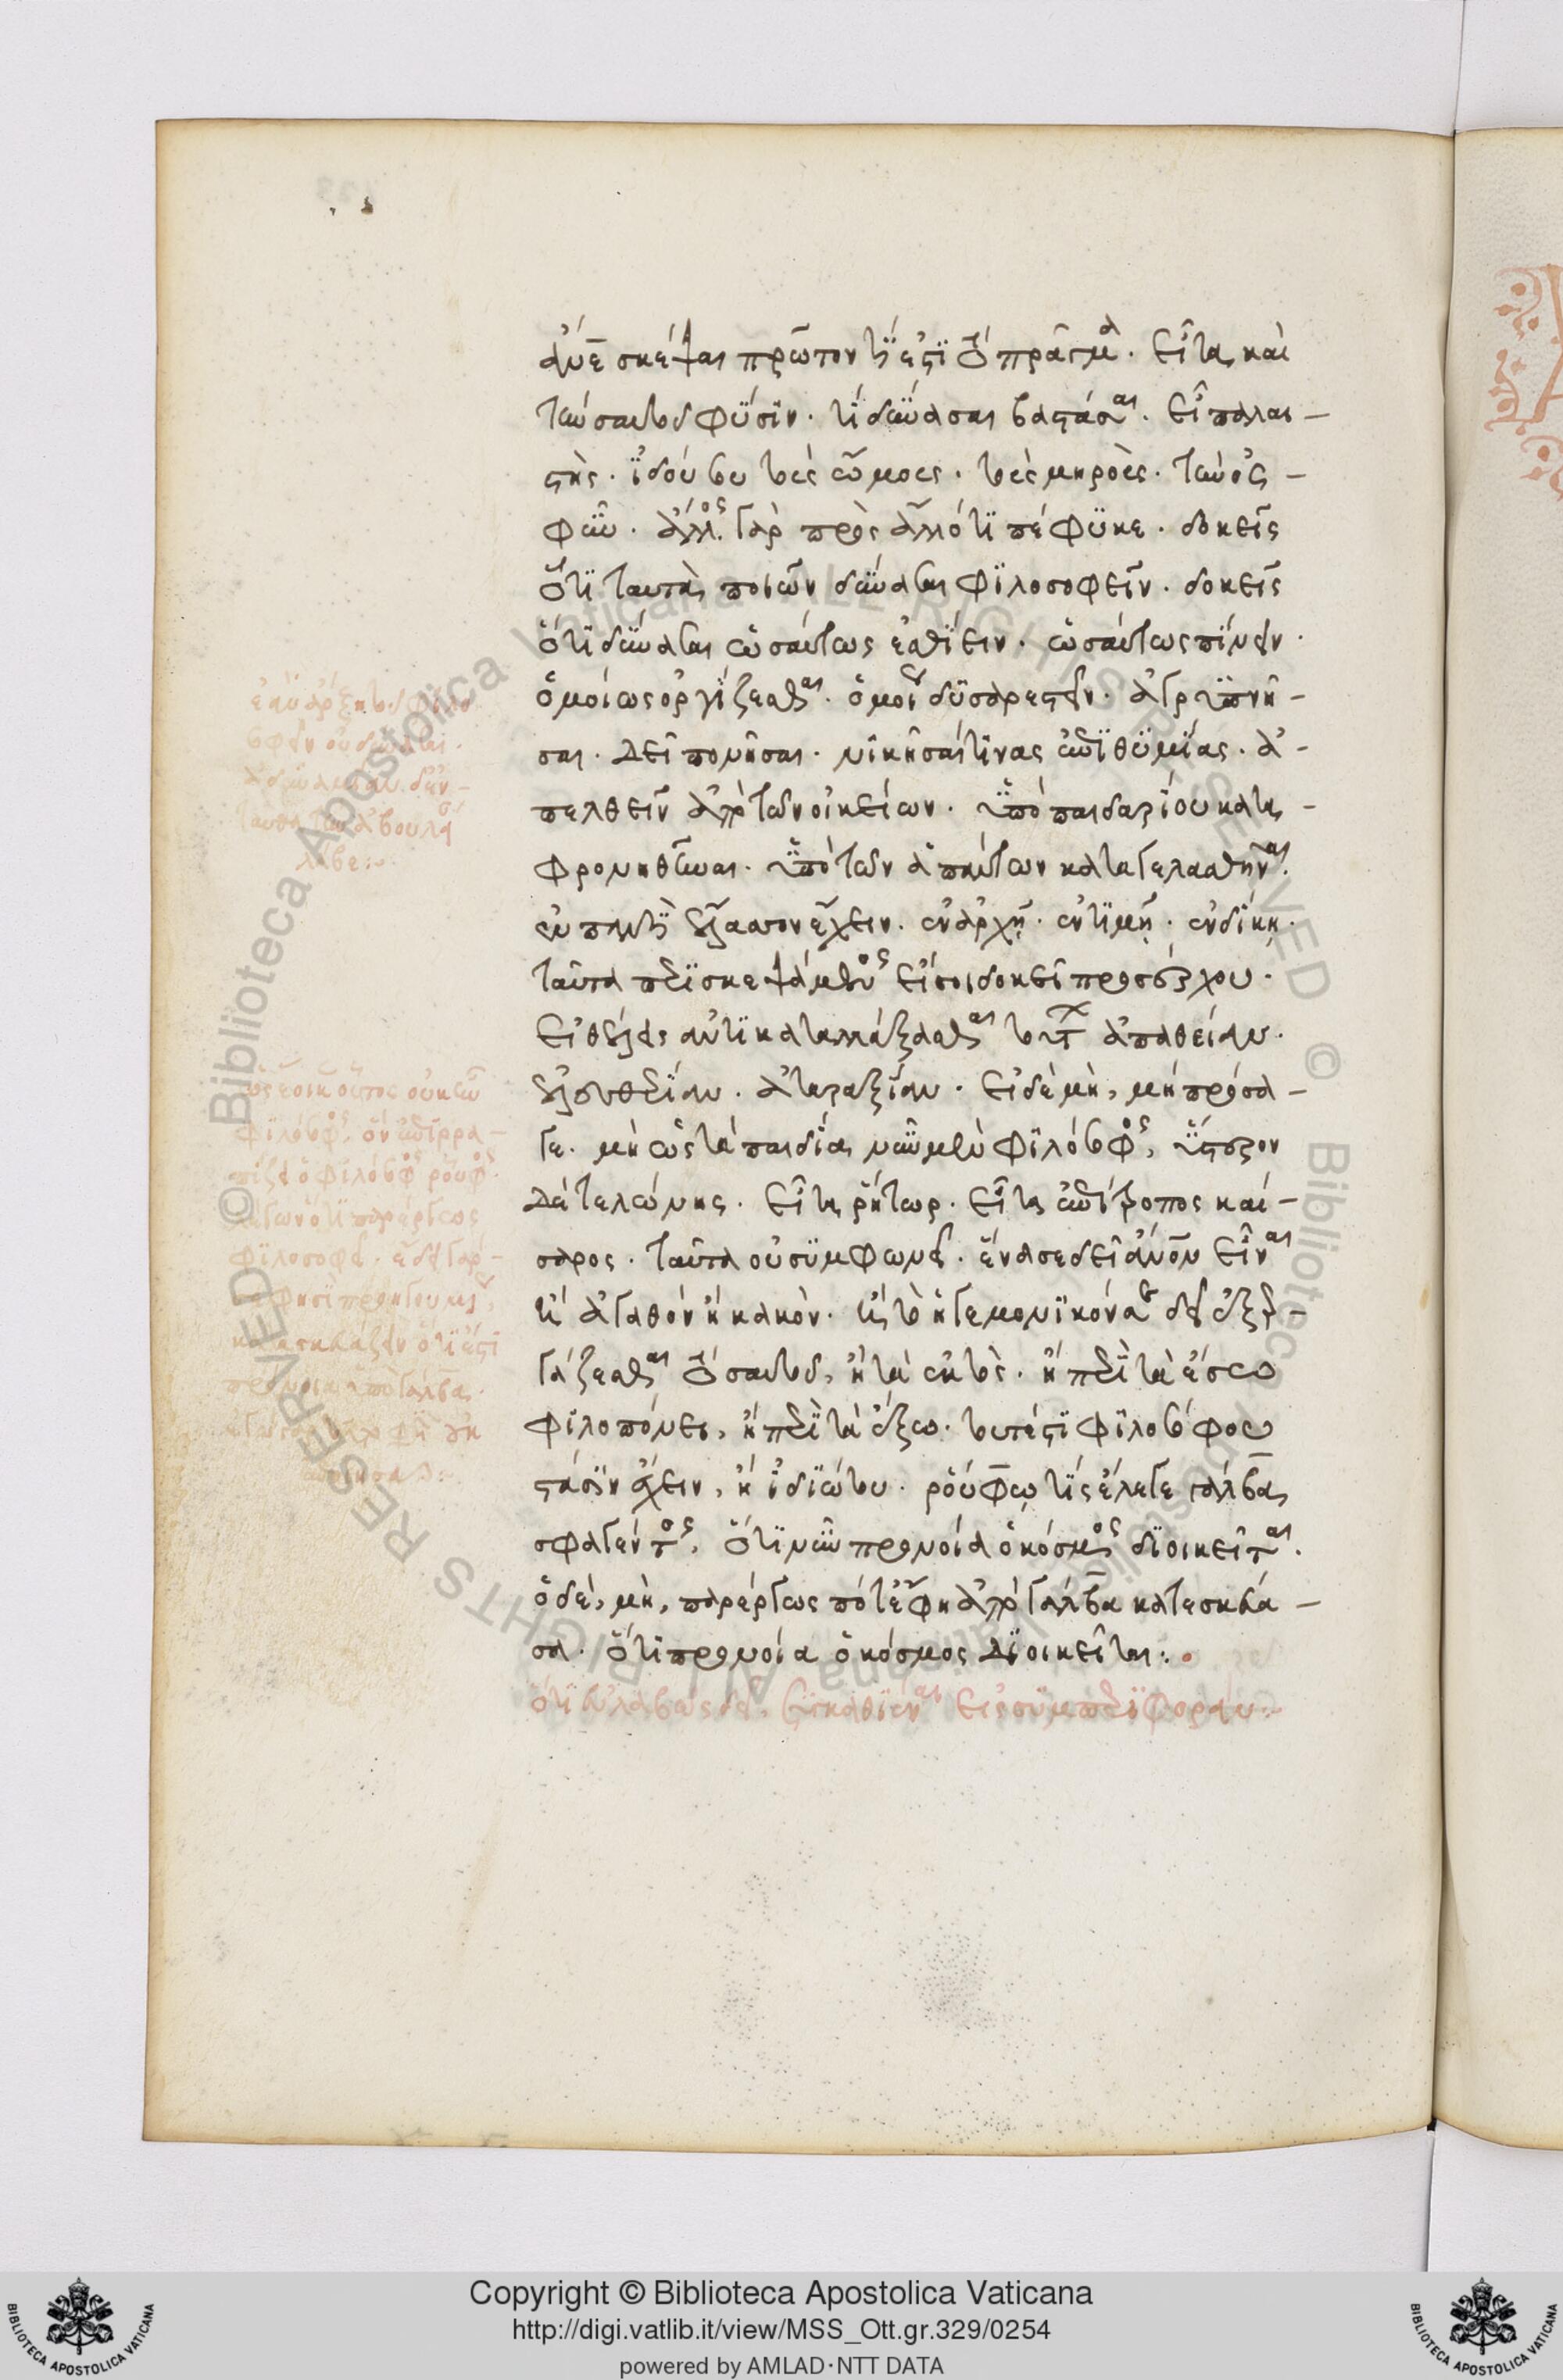 ἄνε σκέψαι πρῶτον τί ἐστι τὸ πρᾶγμα. εἶτα καὶ
τὴν σαυτοῦ φύσιν. τί δύνασαι βαστάσαι. εἰ παλαι-
στής. ἰδού σου τοὺς ὤμους. τοὺς μηρούς. τὴν ὀσ-
φῦν. ἄλλος γὰρ πρὸς ἄλλό τι πέφυκε. δοκεῖς
ὅτι ταῦτα ποιῶν δύνασαι φιλοσοφεῖν. δοκεῖς
ὅτι δύνασαι ὡσαύτως ἐσθίειν. ὡσαύτως πίνειν.
ὁμοίως ὀργίζεσθαι. ὁμοίως δυσαρεστεῖν. ἀγρυπνῆ-
σαι. δεῖ πονῆσαι. νικῆσαί τινας ἐπιθυμίας. ἀ-
πελθεῖν ἀπὸ τῶν οἰκείων. ὑπὸ παιδαρίου κατα-
φρονηθῆναι. ὑπὸ τῶν ἀπαντων καταγελασθῆναι.
ἐν παντὶ ἔλασσον ἔχειν. ἐν ἀρχῇ. ἐν τιμῇ. ἐν δίκῃ.
ταῦτα περισκεψάμενος εἴ σοι δοκεῖ προσέρχου.
εἰ θέλεις ἀντικαταλλάξασθαι τούτων ἀπάθειαν.
ἐλευθερίαν. ἀταραξίαν. εἰ δὲ μή, μὴ πρόσα-
γε. μὴ ὡς τὰ παιδία νῦν μὲν φιλόσοφος, ὕστερον
δὲ τελώνης. εἶτα ῥήτωρ. εἶτα ἐπίτροπος καί-
σαρος. ταῦτα οὐ συμφωνεῖ. ἕνα σε δεῖ ἄνον εἶναι
ἢ ἀγαθὸν ἢ κακόν. ἢ τὸ ἡγεμονικόν σε δεῖ ἐξερ-
γάζεσθαι τὸ σαυτοῦ, ἢ τὰ ἐκτὸς. ἢ περὶ τὰ ἔσω
φιλοπόνει, ἢ περὶ τὰ ἔξω. τουτέστι φιλοσόφου
στάσιν ἔχειν, ἢ ἰδιώτου. ῥούφῳ τὶς ἔλεγε γάλβα
σφαγέντος, ὅτι νῦν προνοίᾳ ὁ κόσμος διοικεῖται.
ὁ δὲ, μὴ, παρέργως ποτ' ἔφη ἀπὸ γάλβα κατεσκεύα-
σα. ὅτι προνοίᾳ ὁ κόσμος διοικεῖται:
ὅτι εὐλαβῶς δεῖ συγκαθιέναι εἰς συμπεριφοράν
Copyright © Biblioteca Apostolica Vaticana
http://digi.vatlib.it/view/MSS_Ott.gr.329/0254
powered by AMLAD·NTT DATA
BIBLIOTECA APOSTOLICA VATICANA
BIBLIOTECA APOSTOLICA VATICANA
© Biblioteca Apostolica Vaticana ALL RIGHTS RESERVED